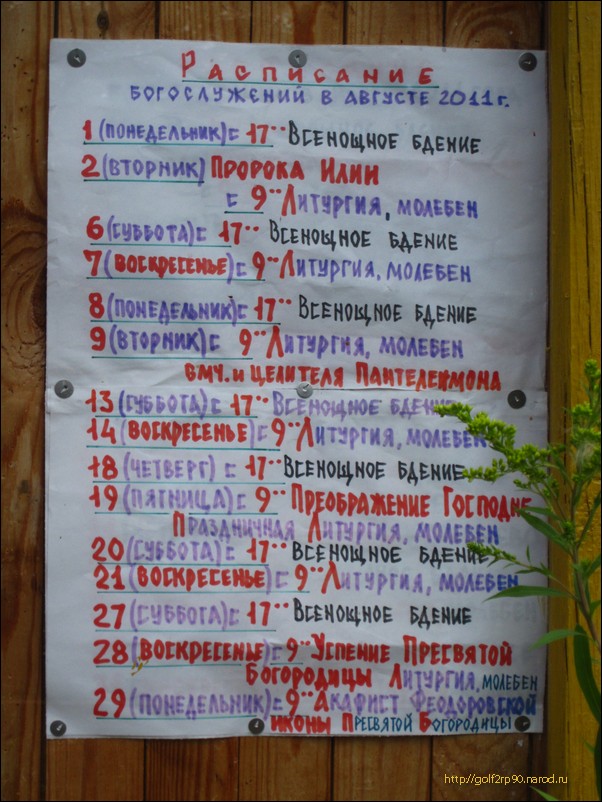 Расписание
БОГОСЛУЖЕНИЙ В АВГУСТЕ 2011г.
1 (ПОНЕДЕЛЬНИК) с 17˙˙ ВСЕНОЩНОЕ БДЕНИЕ
2 (ВТОРНИК) ПРОРОКА ИЛИИ
с 9˙˙ ЛИТУРГИЯ, МОЛЕБЕН
6 (СУББОТА) с 17˙˙ ВСЕНОЩНОЕ БДЕНИЕ
7 (ВОСКРЕСЕНЬЕ) с 9˙˙ ЛИТУРГИЯ, МОЛЕБЕН
8 (ПОНЕДЕЛЬНИК) с 17˙˙ ВСЕНОЩНОЕ БДЕНИЕ
9 (ВТОРНИК) с 9˙˙ ЛИТУРГИЯ, МОЛЕБЕН
ВМЧ. И ЦЕЛИТЕЛЯ ПАНТЕЛЕИМОНА
13 (СУББОТА) с 17˙˙ ВСЕНОЩНОЕ БДЕНИЕ
14 (ВОСКРЕСЕНЬЕ) с 9˙˙ ЛИТУРГИЯ, МОЛЕБЕН
18 (ЧЕТВЕРГ) с 17˙˙ ВСЕНОЩНОЕ БДЕНИЕ
19 (ПЯТНИЦА) с 9˙˙ ПРЕОБРАЖЕНИЕ ГОСПОДНЕ
ПРАЗДНИЧНАЯ ЛИТУРГИЯ, МОЛЕБЕН
20 (СУББОТА) с 17˙˙ ВСЕНОЩНОЕ БДЕНИЕ
21 (ВОСКРЕСЕНЬЕ) с 9˙˙ ЛИТУРГИЯ, МОЛЕБЕН
27 (СУББОТА) с 17˙˙ ВСЕНОЩНОЕ БДЕНИЕ
28 (ВОСКРЕСЕНЬЕ) с 9˙˙ УСПЕНИЕ ПРЕСВЯТОЙ
БОГОРОДИЦЫ ЛИТУРГИЯ, МОЛЕБЕН
29 (ПОНЕДЕЛЬНИК) с 9˙˙ АКАФИСТ ФЕОДОРОВСКОЙ
ИКОНЫ ПРЕСВЯТОЙ БОГОРОДИЦЫ
http://golf2rp90.narod.ru